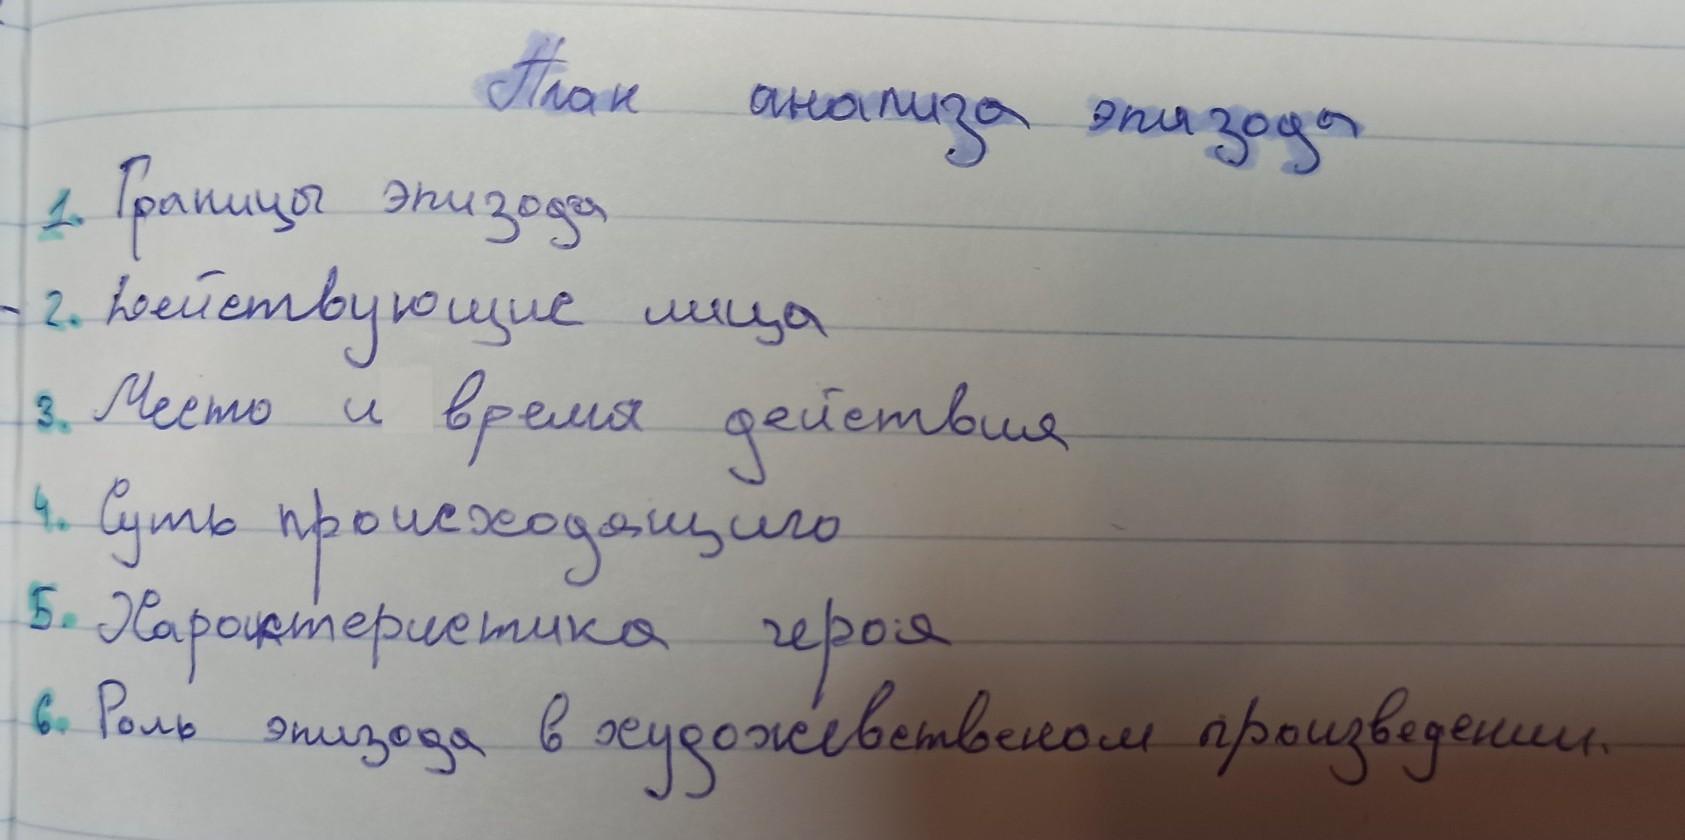 План анализа эпизода
1. Границы эпизода
2. Действующие лица
3. Место и время действия
4. Суть происходящиго
5. Характеристика героя
6. Роль эпизода в художевственом произведении.